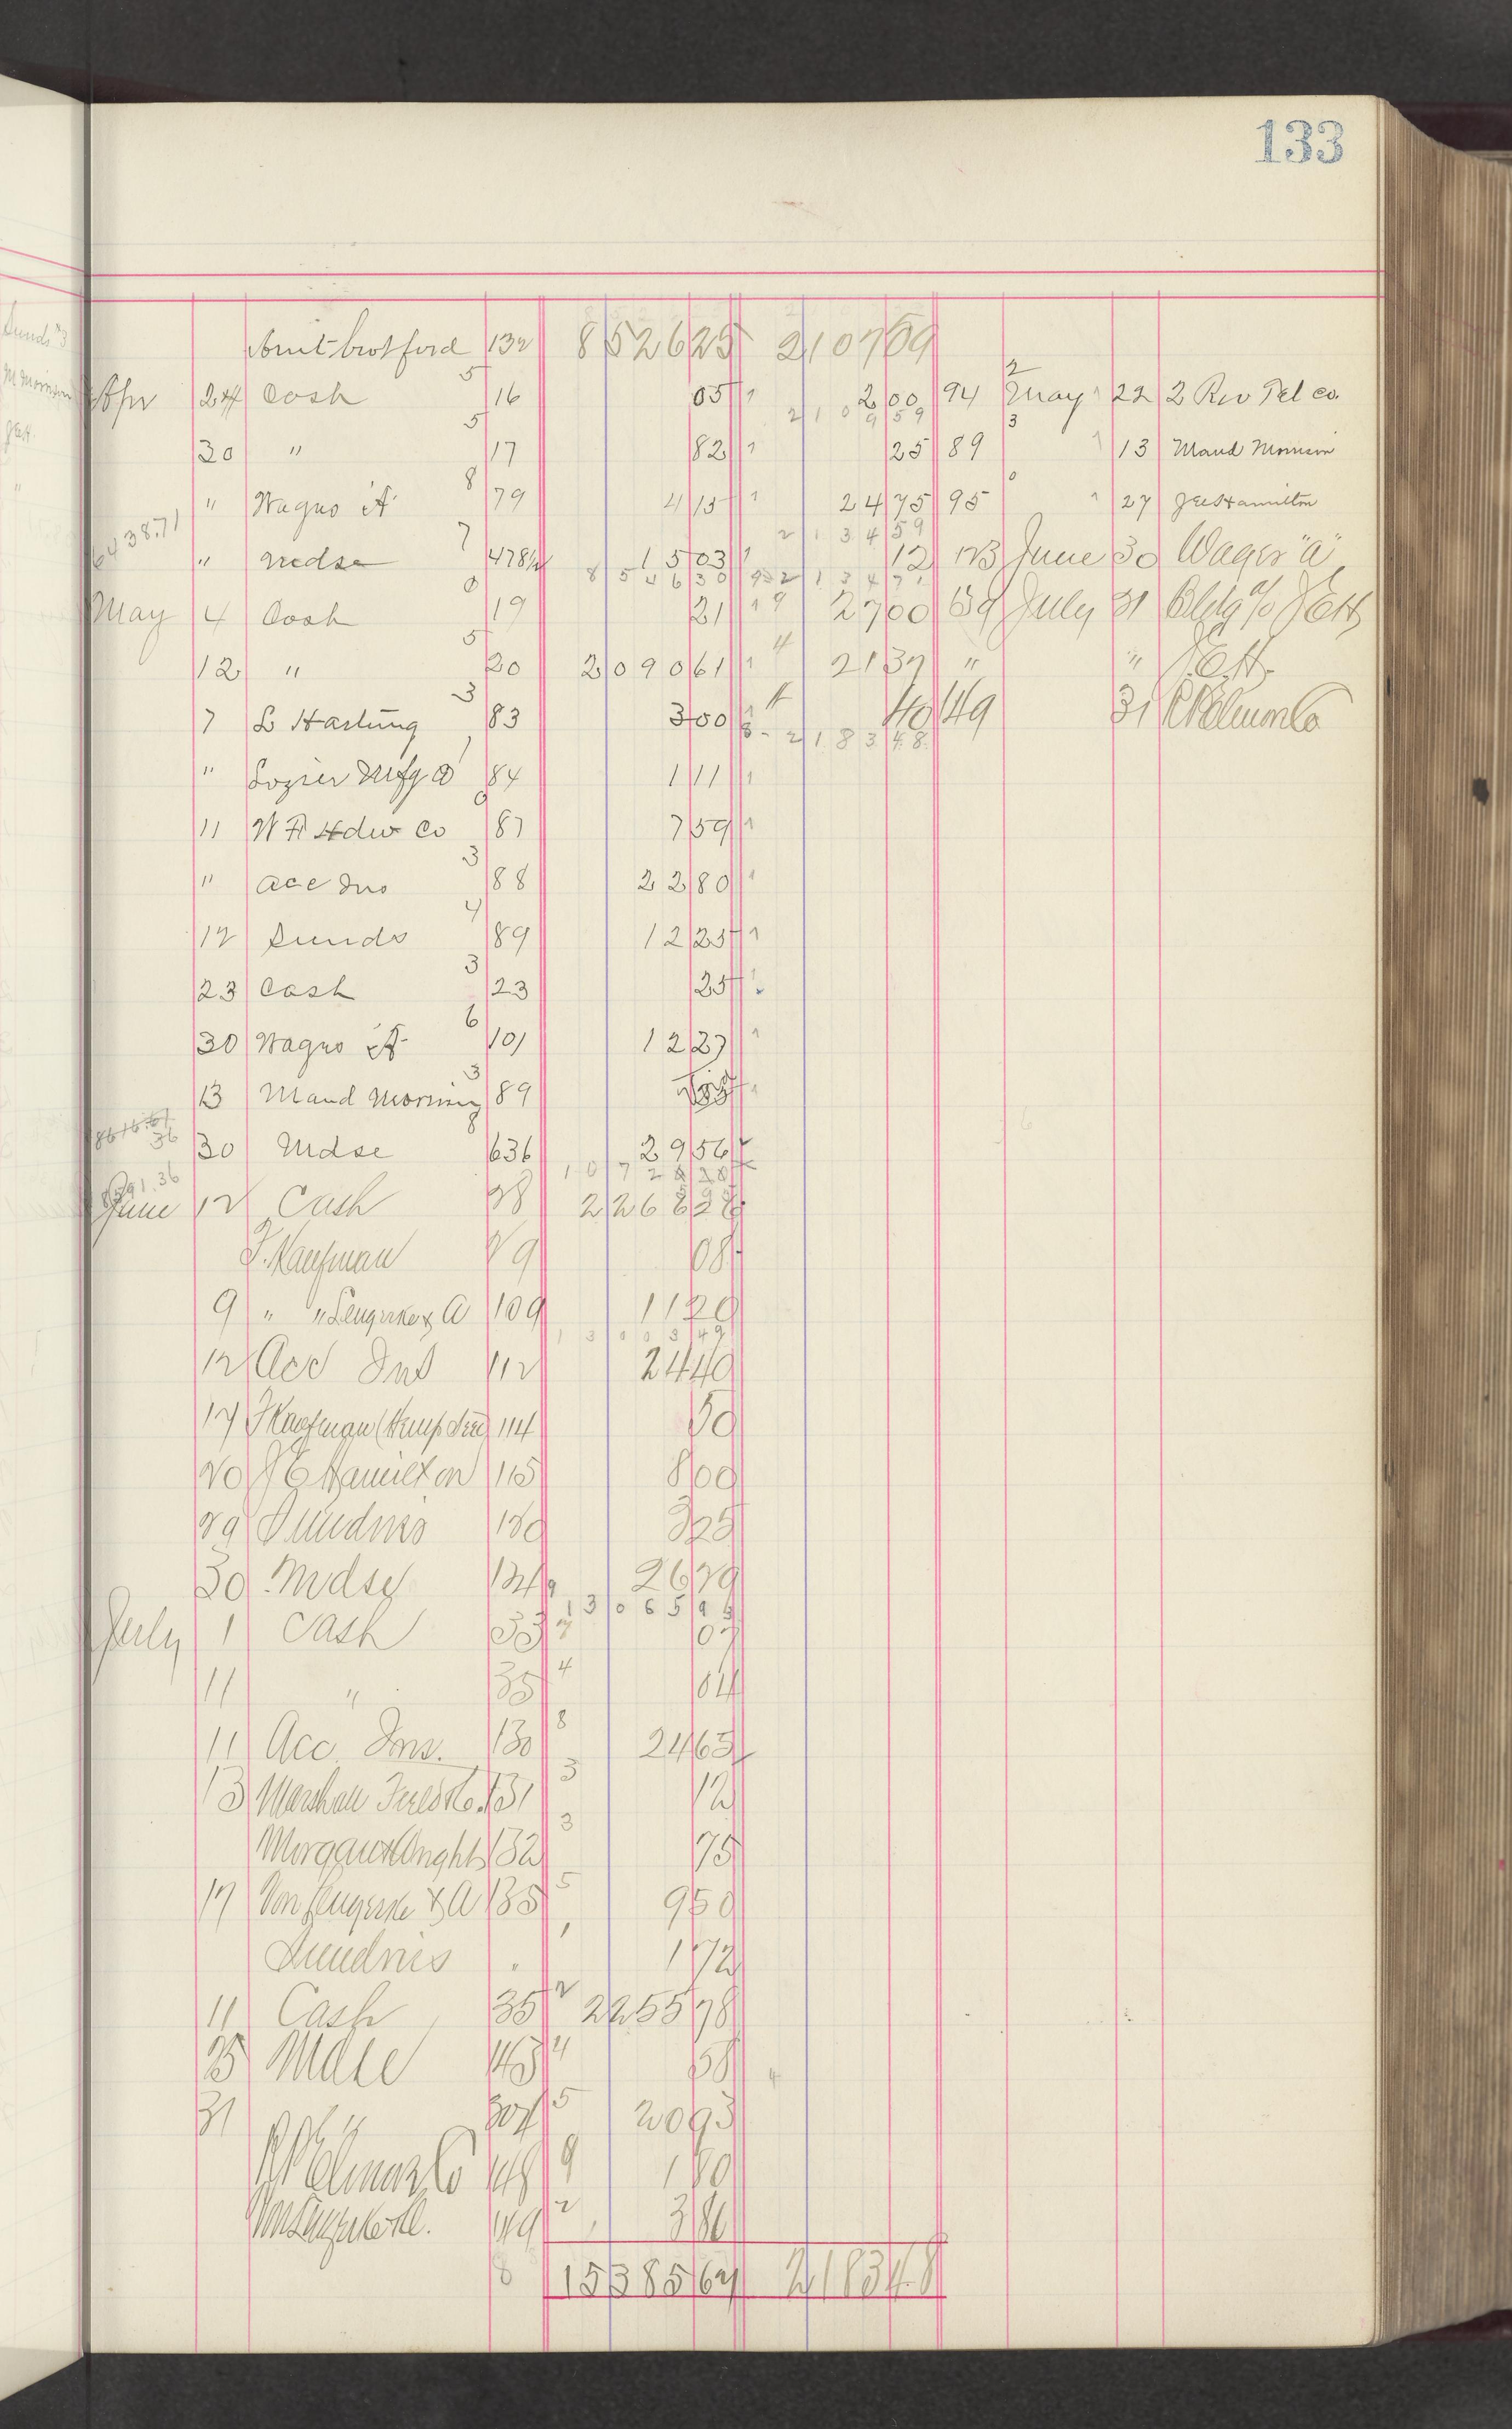 133
Amt brot ford 132 8526 25 2107 59
Apr 24 Cash 5 16 05 2 00 94 May 22 2 Riv Tel Co.
2109 59
30 " 5 17 82 25 89 3 13 Maud Morrison
" Wages "A" 8 79 4 15 24 75 95 27 J E Hamilton
6438.71 2134 59
" Mdse 7 478 15 03 12 123 June 30 Wages "A"
8546 30
May 4 Cash 19 21 27 00 July 31 Bldg a/c JEH
12 " 5 20 2090 61 21 37 " " J.E.H.
7 L Hartung 3 83 3 00 40 149 31
2183 48
" Lozier Mfg Co 84 1 11
11 W R Hdw Co 87 7 59
" Acc Ins 3 88 22 80
12 Sunds 4 89 12 25
23 Cash 3 23 25
30 Wages "A" 6 101 12 27
13 Maud Morrison 3 89
36
30 Mdse 8 636 29 56
June 12 Cash 28 2268 28
F. Kaufman 29 08
9 " " Lengerke & A 109 11 20
13003 49
12 Acc Ins 112 24 40
17 F Kaufman 114 50
20 J E Hamilton 115 8 00
29 Sundries 130 3 25
30 Mdse 26 29
13065 93
July 1 Cash 33 07
11 " 35 4 04
11 Acc. Ins. 130 8 24 65
13 Marshall Field & Co. 131 3 12
Morgan & Wright 132 3 75
17 Von Lengerke & A 135 5 9 50
Sundries " 1 72
11 Cash 35 2 2255 78
25 Mdse 145 4 58
31 " 307 5 20 93
148 9 1 80
Von Lengerke & A. 149 2 3 86
15385 67 2183 48